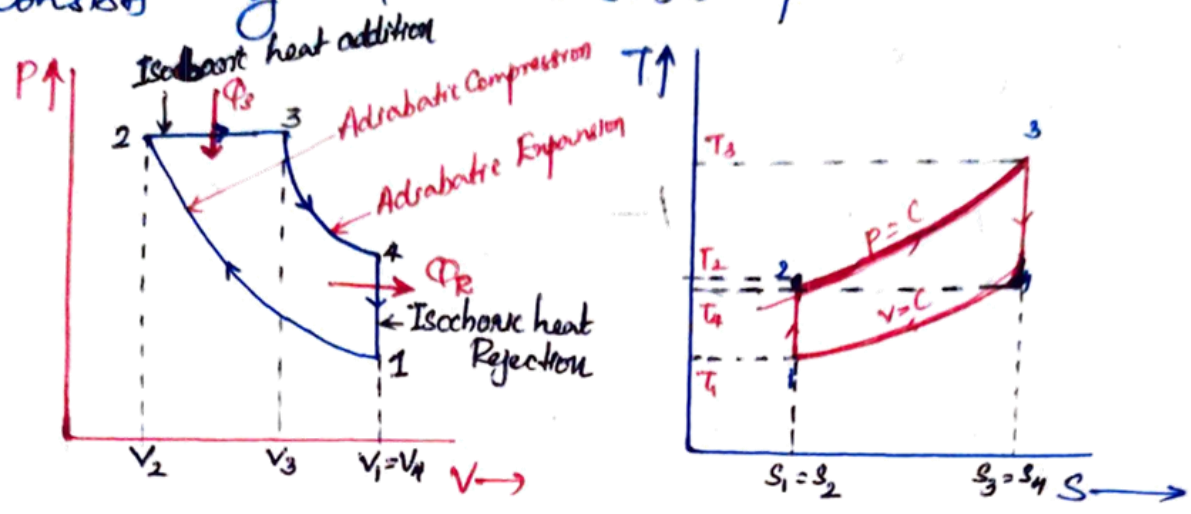 Isobaric heat addition
P↑
Φs
2
3
Adiabatic Compression
Adiabatic Expansion
4
ΦR
Isochoric heat
Rejection
1
V₂
V₃
V₁=V₄
V→
T↑
T₃
T₂
T₄
T₁
3
2
P=C
V=C
4
1
S₁=S₂
S₃=S₄
S→